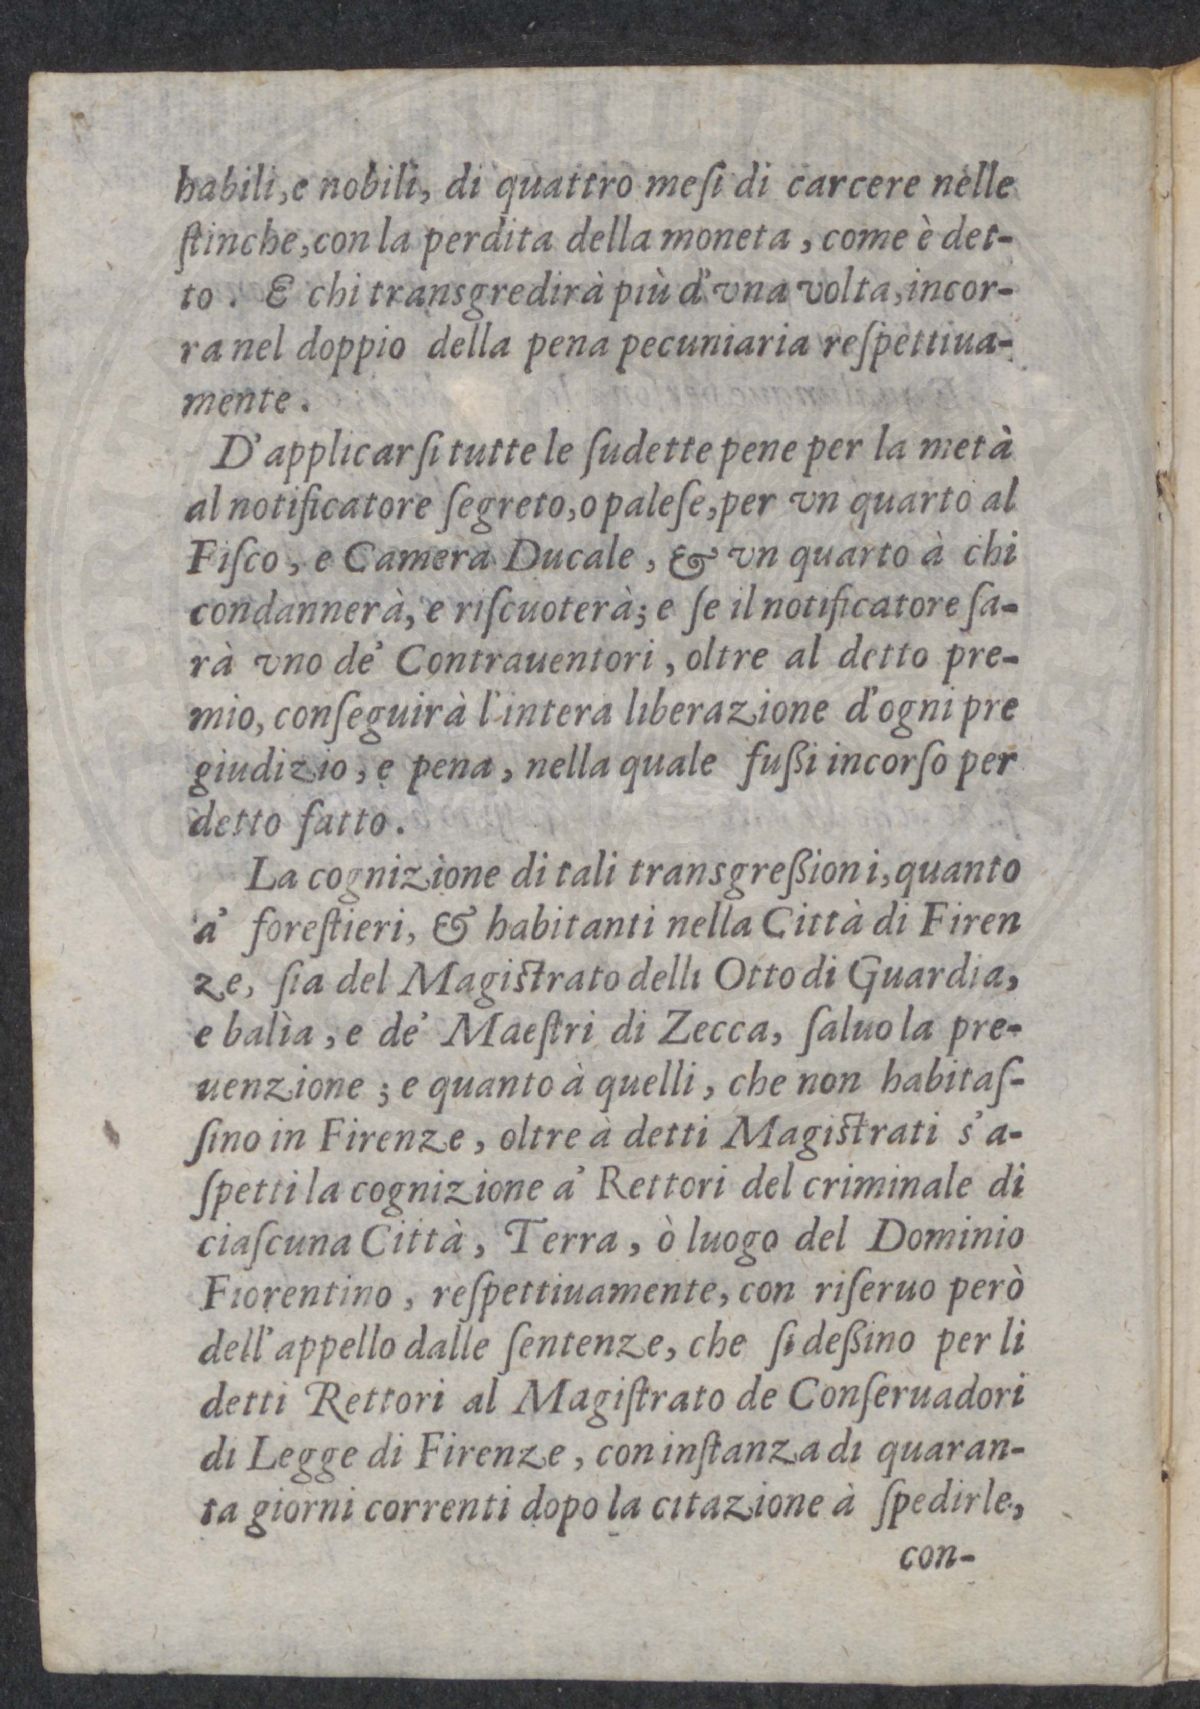 habili, e nobili, di quattro meſi di carcere nelle
ſtinche, con la perdita della moneta, come è det-
to. E chi transgredirà più d'vna volta, incor-
ra nel doppio della pena pecuniaria reſpettiua-
mente.
D'applicarſi tutte le ſudette pene per la metà
al notificatore ſegreto, o paleſe, per vn quarto al
Fiſco, e Camera Ducale, & vn quarto à chi
condannerà, e riſcuoterà; e ſe il notificatore ſa-
rà vno de' Contrauentori, oltre al detto pre-
mio, conſeguirà l'intera liberazione d'ogni pre
giudizio, e pena, nella quale fußi incorſo per
detto fatto.
La cognizione di tali transgreßioni, quanto
a' foreſtieri, & habitanti nella Città di Firen
ze, ſia del Magiſtrato delli Otto di Guardia,
e balìa, e de' Maeſtri di Zecca, ſaluo la pre-
uenzione; e quanto à quelli, che non habitaſ-
ſino in Firenze, oltre à detti Magiſtrati s'a-
ſpetti la cognizione a' Rettori del criminale di
ciaſcuna Città, Terra, ò luogo del Dominio
Fiorentino, reſpettiuamente, con riſeruo però
dell'appello dalle ſentenze, che ſi deßino per li
detti Rettori al Magiſtrato de Conſeruadori
di Legge di Firenze, con inſtanza di quaran-
ta giorni correnti dopo la citazione à ſpedirle,
con-